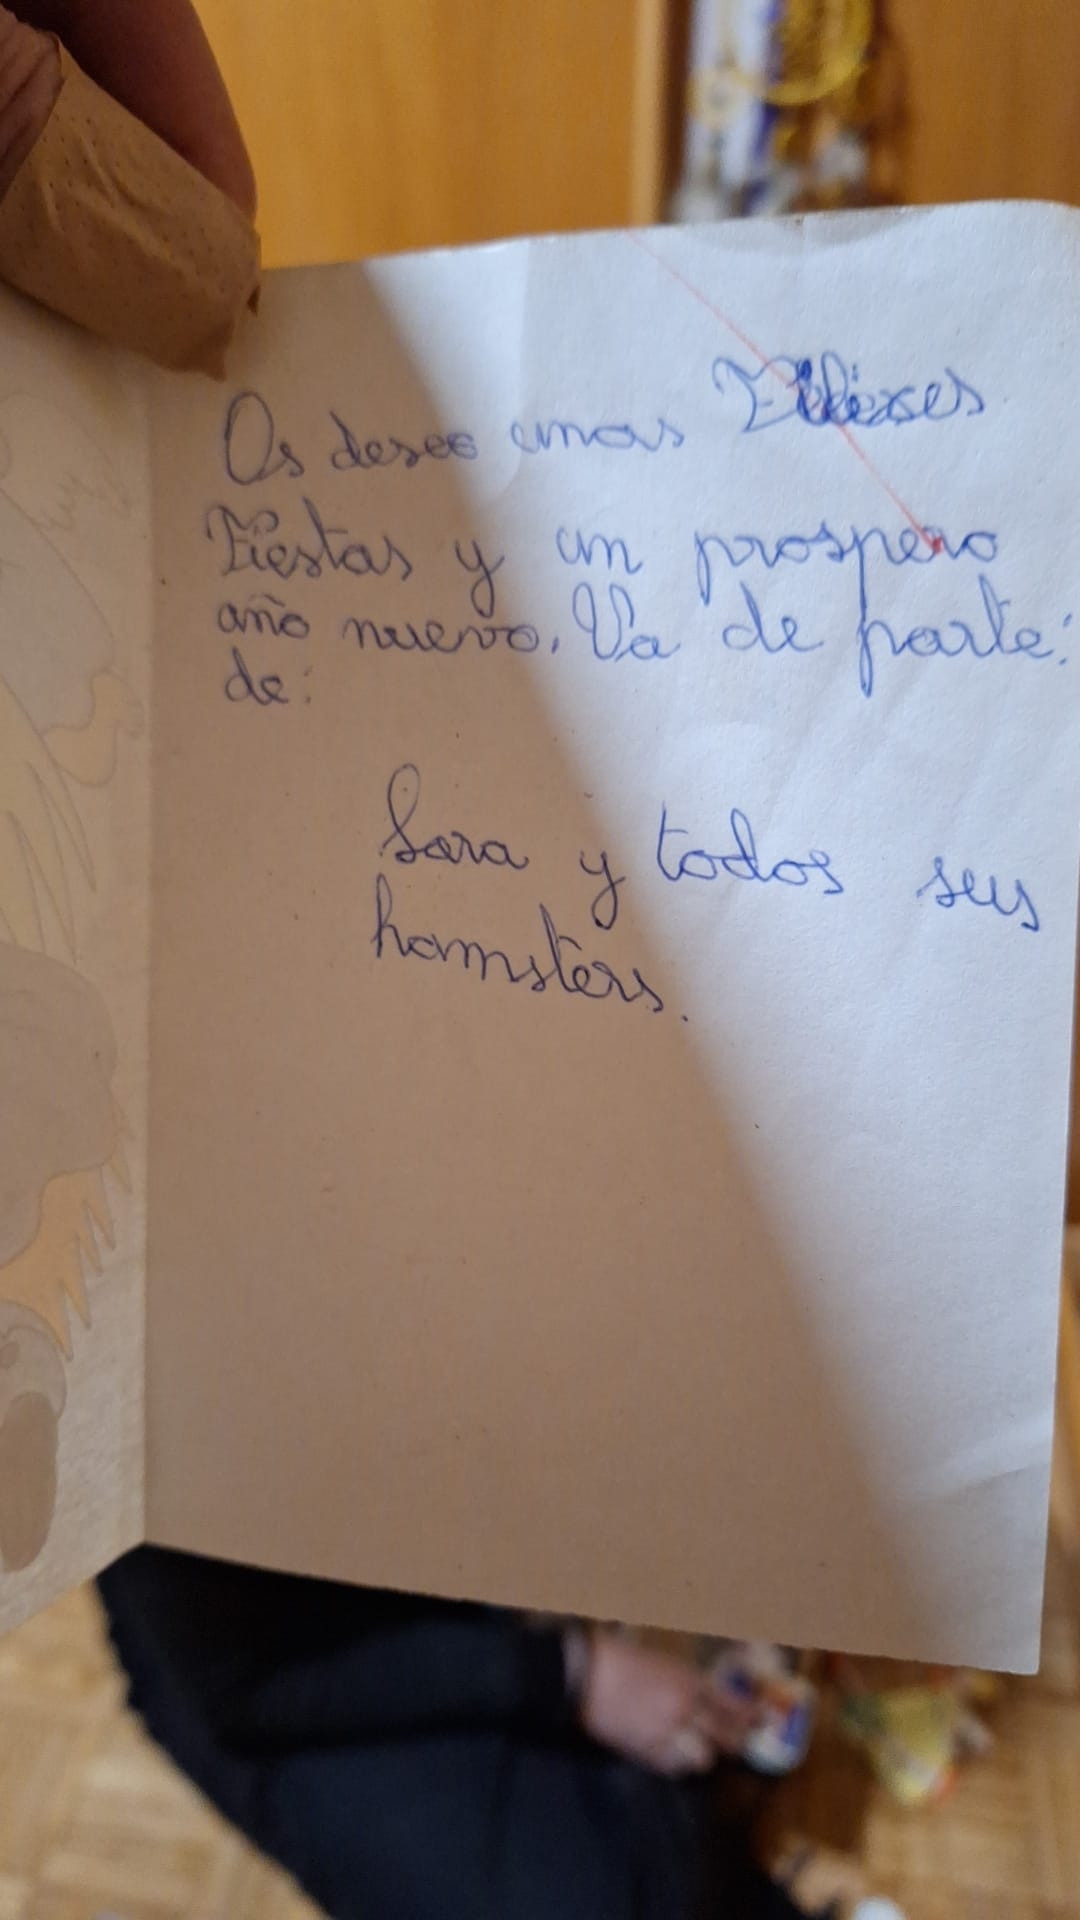 Os deseo unas Felices
Fiestas y un prospero
año nuevo. Va de parte:
de:
Sara y todos sus
hamsters.